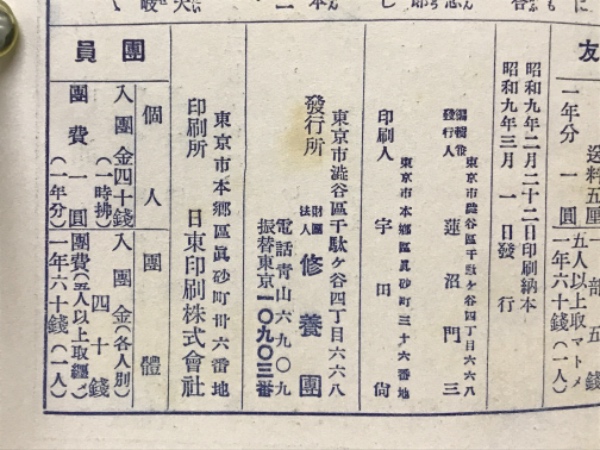 友
一年分 一圓
送料五厘
一部 五錢
五人以上取マトメ
一年六十錢（一人）
昭和九年二月二十二日印刷納本
昭和九年三月 一日發行
東京市澁谷區千駄ヶ谷四丁目六六八
編輯兼
發行人 蓮沼門三
東京市本鄕區眞砂町三十六番地
印刷人 宇田 尙
東京市澁谷區千駄ヶ谷四丁目六六八
發行所 財團法人 修養團
電話靑山六九〇九
振替東京一〇九〇三番
東京市本鄕區眞砂町卅六番地
印刷所 日東印刷株式會社
團員
個人
入團金四十錢
（一時拂）
團費 一圓
（一年分）
團體
入團金（各人別）
四十錢
團費（五人以上取纏）
一年六十錢（一人）